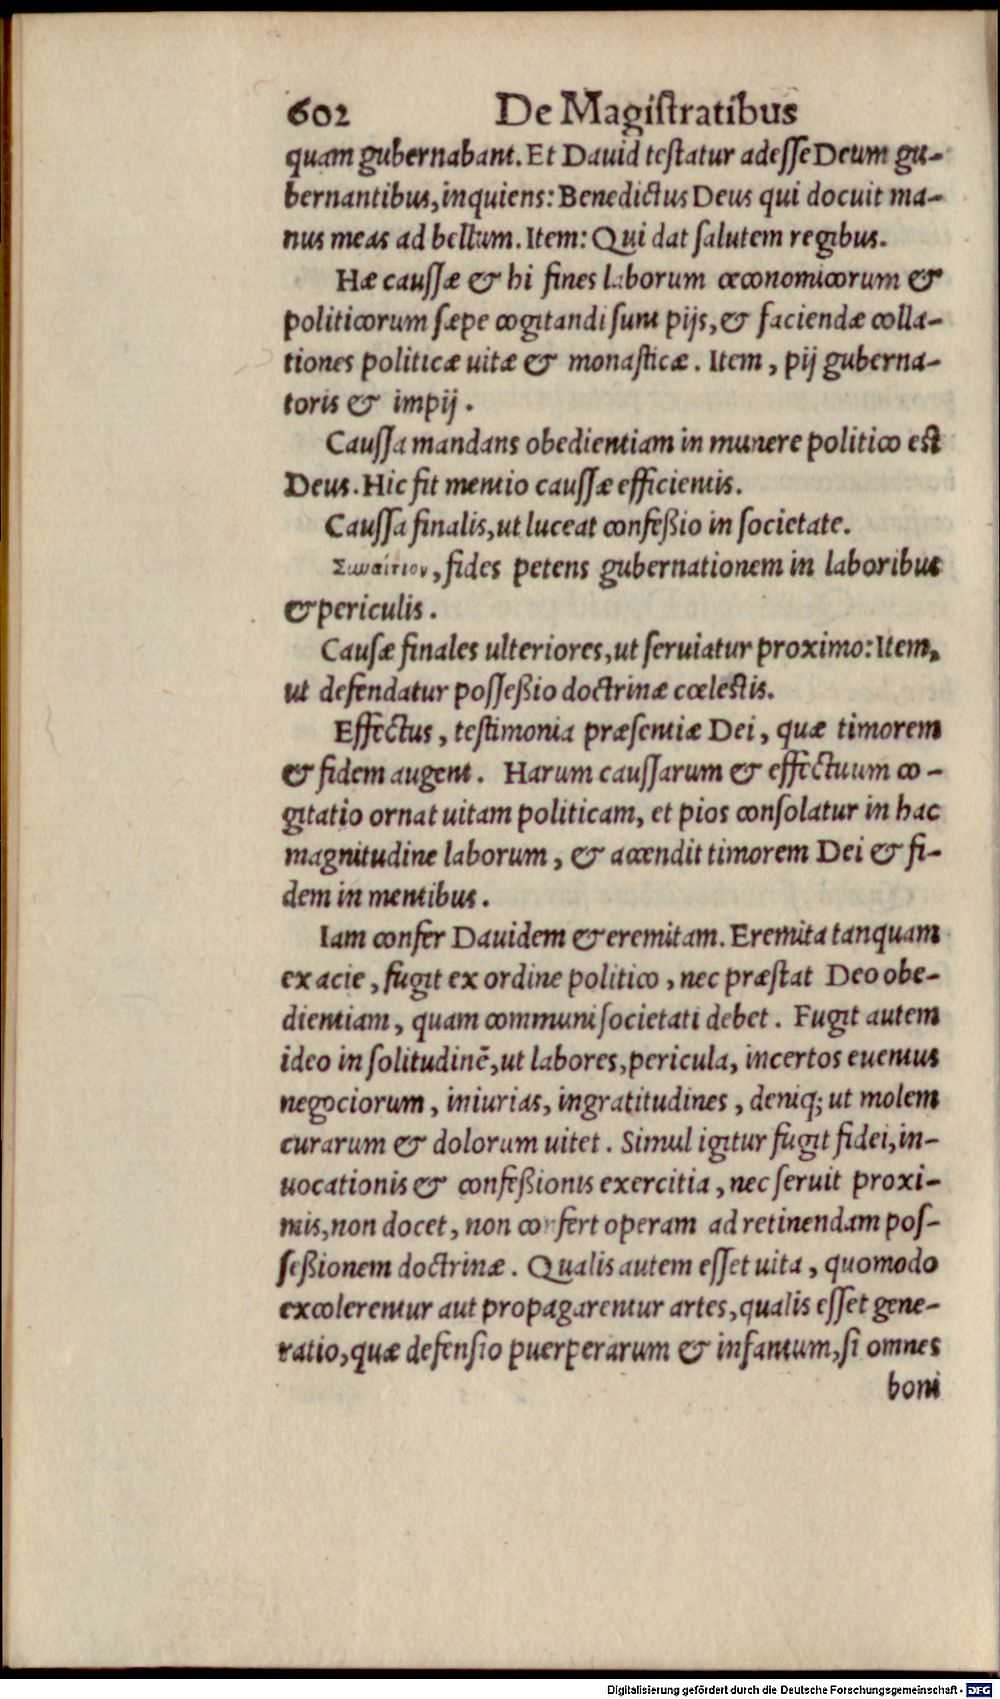 602 De Magistratibus
quam gubernabant. Et Dauid testatur adesse Deum gu-
bernantibus, inquiens: Benedictus Deus qui docuit ma-
nus meas ad bellum. Item: Qui dat salutem regibus.
Hæ caussæ & hi fines laborum œconomicorum &
politicorum sæpe cogitandi sunt pijs, & faciendæ colla-
tiones politicæ uitæ & monasticæ. Item, pij guberna-
toris & impij.
Caussa mandans obedientiam in munere politico est
Deus. Hic fit mentio caussæ efficientis.
Caussa finalis, ut luceat confeßio in societate.
Συναίτιον, fides petens gubernationem in laboribus
& periculis.
Causæ finales ulteriores, ut seruiatur proximo: Item,
ut defendatur posseßio doctrinæ cœlestis.
Effectus, testimonia præsentiæ Dei, quæ timorem
& fidem augent. Harum caussarum & effectuum co-
gitatio ornat uitam politicam, et pios consolatur in hac
magnitudine laborum, & accendit timorem Dei & fi-
dem in mentibus.
Iam confer Dauidem & eremitam. Eremita tanquam
ex acie, fugit ex ordine politico, nec præstat Deo obe-
dientiam, quam communi societati debet. Fugit autem
ideo in solitudinẽ, ut labores, pericula, incertos euentus
negociorum, iniurias, ingratitudines, deniq; ut molem
curarum & dolorum uitet. Simul igitur fugit fidei, in-
uocationis & confeßionis exercitia, nec seruit proxi-
mis, non docet, non confert operam ad retinendam pos-
seßionem doctrinæ. Qualis autem esset uita, quomodo
excolerentur aut propagarentur artes, qualis esset gene-
ratio, quæ defensio puerperarum & infantum, si omnes
boni
Digitalisierung gefördert durch die Deutsche Forschungsgemeinschaft - DFG